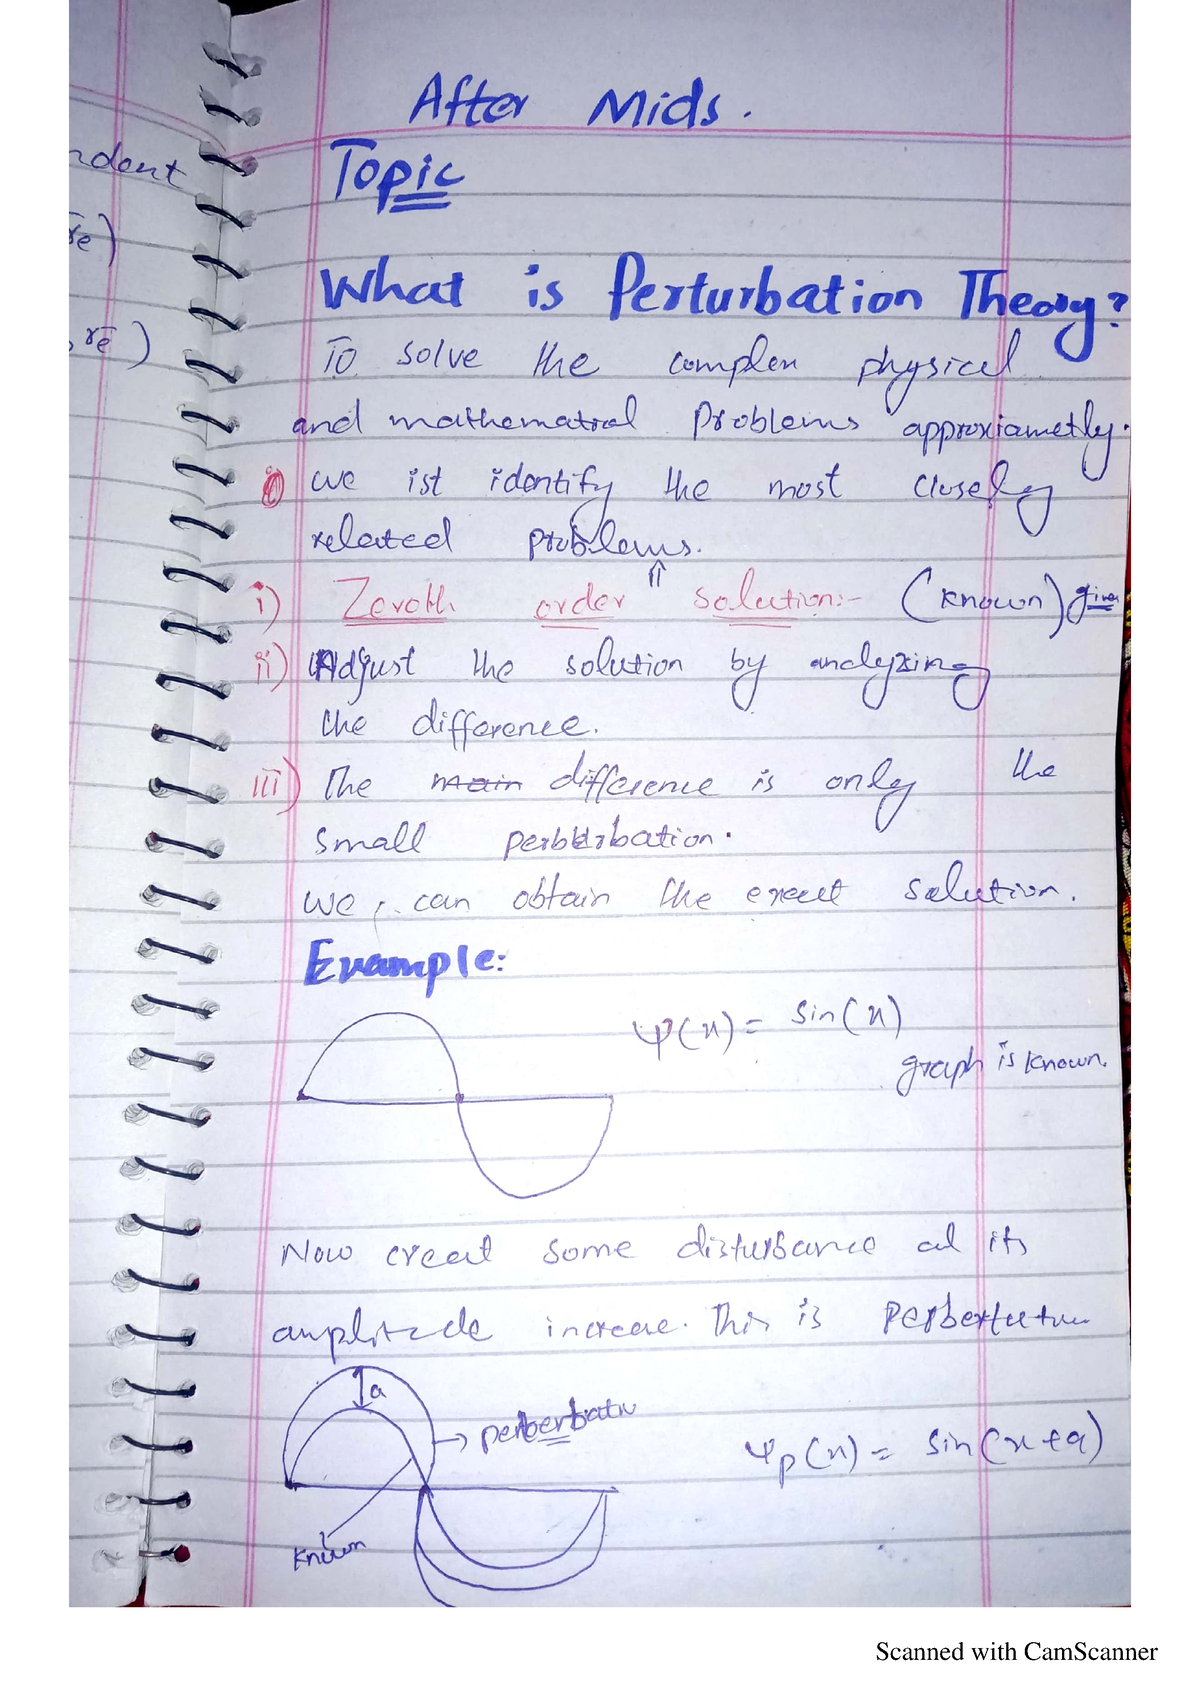 After Mids.
Topic
ndent
re)
, re)
What is Perturbation Theory?
To solve the complex physical
and mathematical Problems approxiametly.
i) we ist identify the most closely
related problems.
⇑
i) Zeroth order solution:- (known) given
ii) Adjust the solution by analyzing
the difference.
iii) The main difference is only the
small perbturbation.
we can obtain the exact solution.
Example:
ψ(x) = sin(x)
graph is known.
Now creat some disturbance at its
amplitude increase. This is Perberbation
a
→ perberbation
ψp(x) = sin(x+a)
known
Scanned with CamScanner